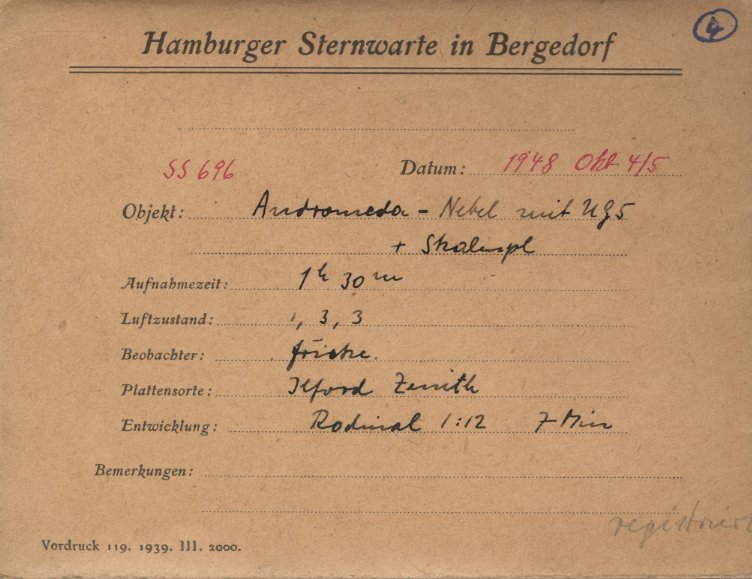 4
Hamburger Sternwarte in Bergedorf
SS 696 Datum: 1948 Okt 4/5
Objekt: Andromeda - Nebel mit UG5
+ Skalenpl
Aufnahmezeit: 1h 30m
Luftzustand: 1, 3, 3
Beobachter:
Plattensorte: Ilford Zenith
Entwicklung: Rodinal 1:12 7 Min
Bemerkungen:
registriert
Vordruck 119. 1939. III. 2000.